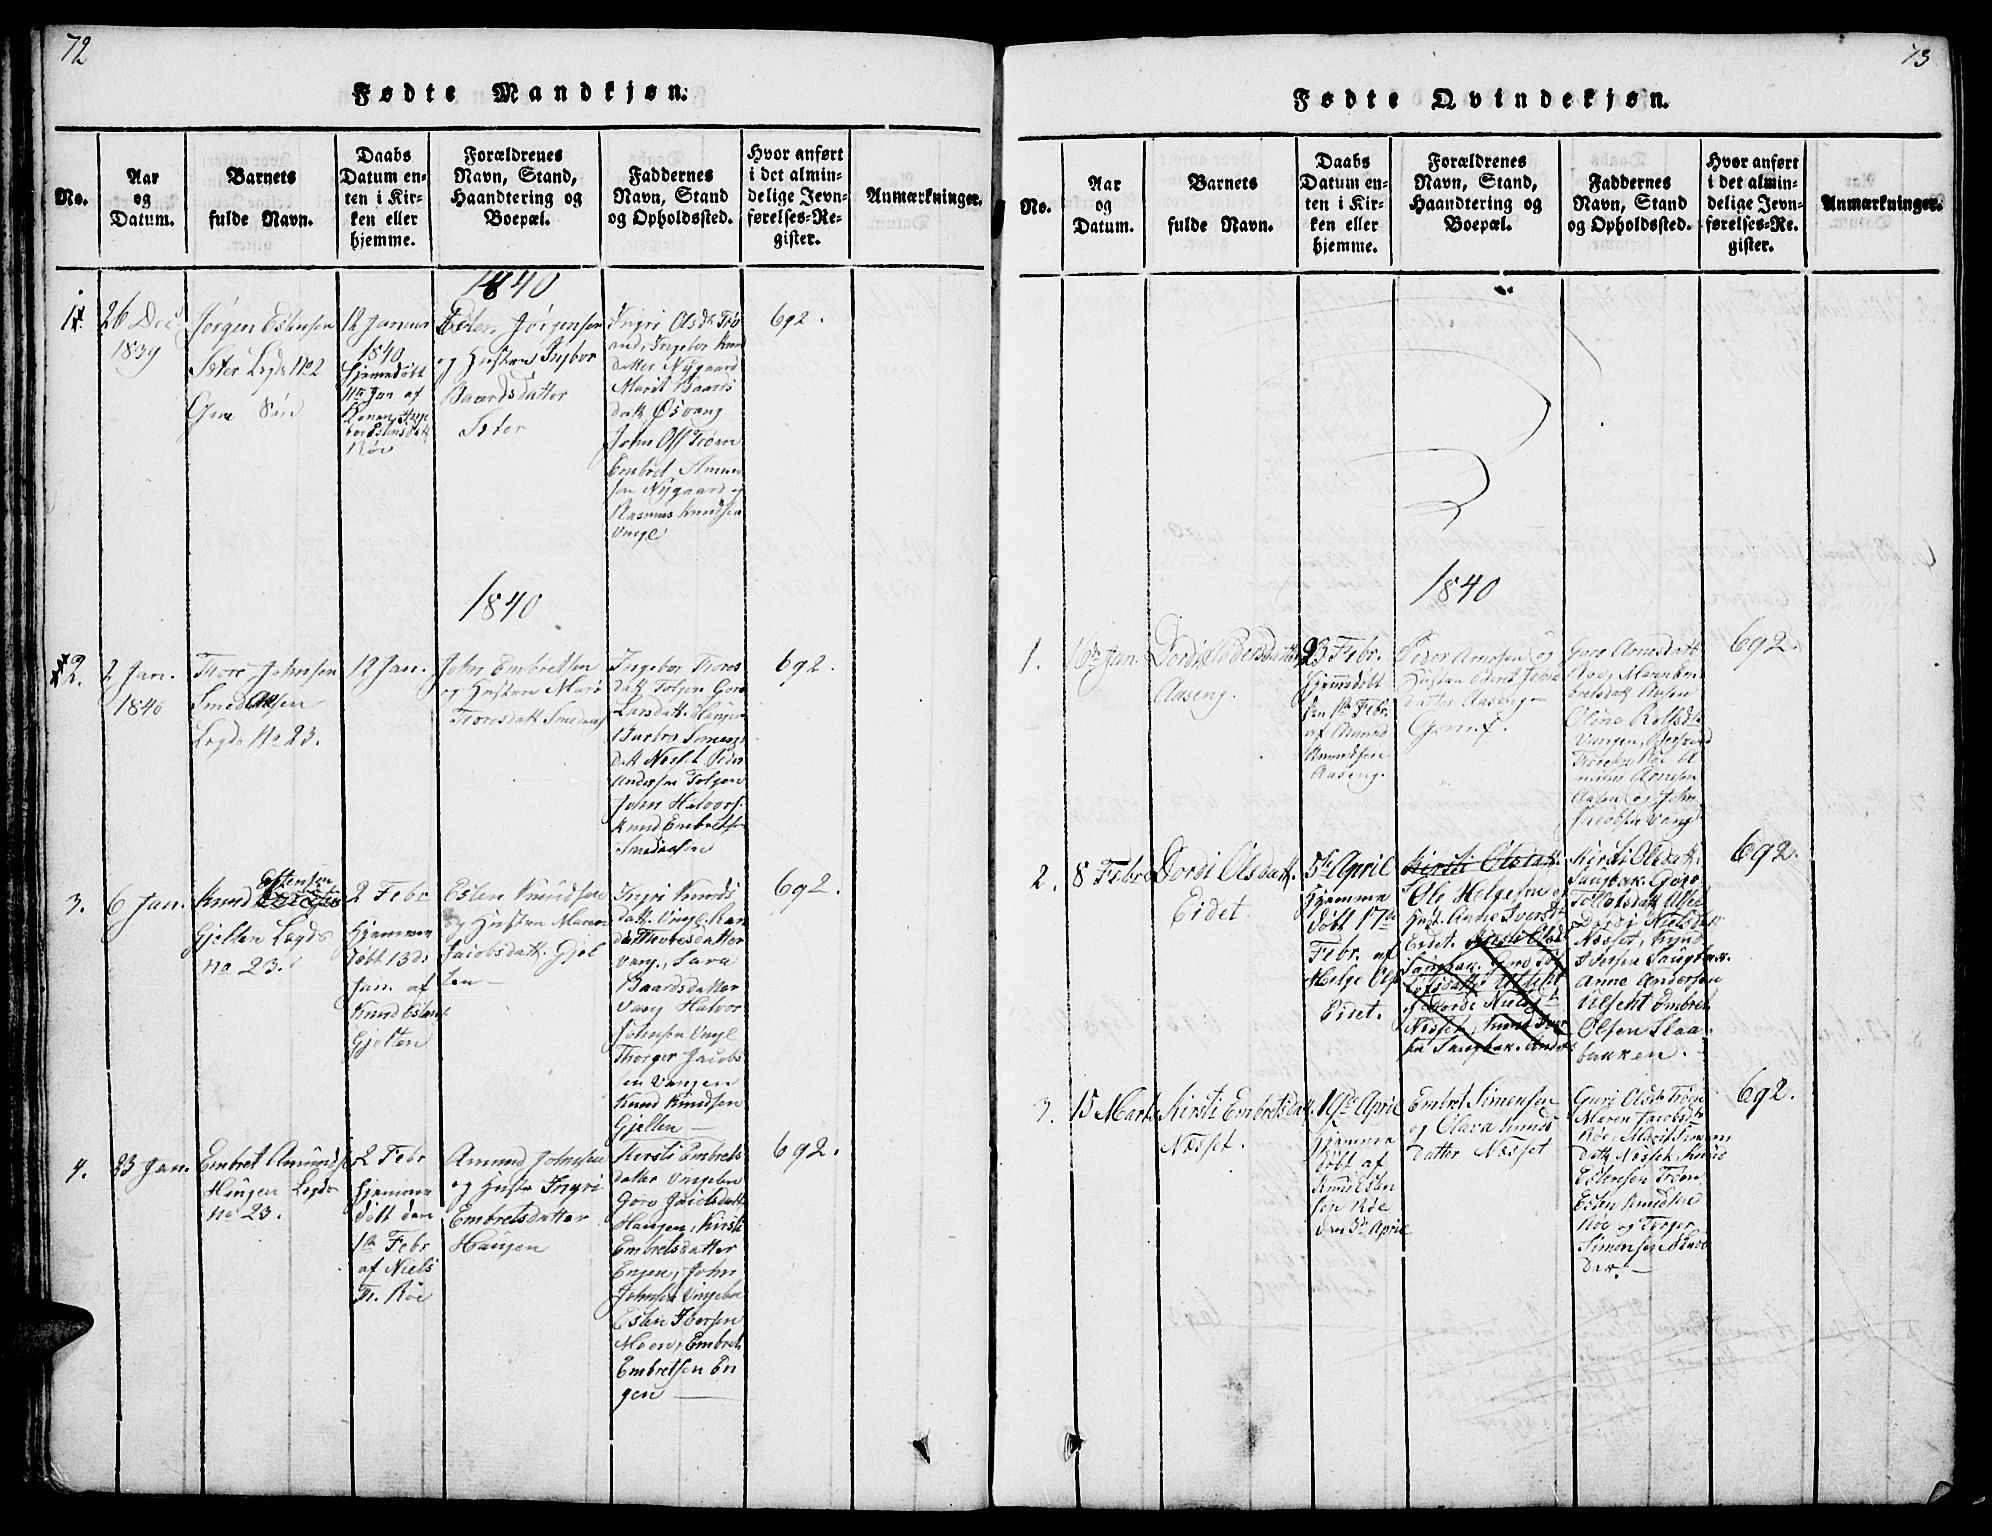 72
Fødte Mandkjøn.
No.
Aar
og
Datum.
Barnets
fulde Navn.
Daabs
Datum en-
ten i Kir-
ken eller
hjemme.
Forældrenes
Navn, Stand,
Haandtering og
Boepæl.
Faddernes
Navn, Stand
og Opholdssted.
Hvor anført
i det almin-
delige Jevn-
førelses-Re-
gister.
Anmærkninger.
1840
26 Dec
1839
Jørgen Estensen
Sæter Lægds No 2
12 Januar
1840
Hjemmedøbt
af
Røe
Esten Jørgensen
og Hustru Ingbor
Baardsdatter
Sæter
Ingri Olsdtr Trø
Ingebor Knu
datter Nygaard
Marit Baards
datt Øsvang
John Ols Trøen
Embret Amun
sen Nygaard og
Rasmus Knudsen
Vingl
692.
1840
2.
2 Jan.
1840
Thore Johnsen
Smedaasen
Lægds No 23.
12 Jan.
John Embretsen
og Hustru Mari
Thoresdatt Smedaas
Ingebor Thores
datt Tolgen Goro
Larsdatt. Haugen
Barbro Simens
datt Nesset Peder
Andersen Tolgen
John Halvors.
Knud Embretsen
Smedaasen
692.
3.
6 Jan.
Knud Estensen
Gjelten Lægds
No 23.
2 Febr
Hjemme
døbt 13 d.
Jan. af
Knud Estens
Gjelten
Esten Knudsen
og Hustru Maren
Jacobsdatt. Gjel
ten —
Ingri Knuds
datt. Vingl. Kari
Thoresdatter
Vang, Sara
Baardsdatter
Vang Halvor
Johnsen Vingl
Thorger Jacobs
en Vangen
Knud Knudsen
Gjelten —
692.
4.
23 Jan.
Embret Amunds
Haugen Lægds
No 23.
2 Febr
Hjemme
døbt den
1te Febr
af Niels
Th. Røe
Amund Johnsen
og Hustr Ingri
Embretsdatter
Haugen
Kirsti Embrets
datter Vingelen
Goro Jacobsdatt
Haugen, Kirsti
Embretsdatter
Engen, John
Johnsen Vingelen
Esten Iversen
Moen, Embret
Embretsen En
gen —
692.
73
Fødte Qvindekjøn.
No.
Aar
og
Datum.
Barnets
fulde Navn.
Daabs
Datum en-
ten i Kir-
ken eller
hjemme.
Forældrenes
Navn, Stand,
Haandtering og
Boepæl.
Faddernes
Navn, Stand
og Opholdssted.
Hvor anført
i det almin-
delige Jevn-
førelses-Re-
gister.
Anmærkninger.
1840
1.
16de Jan.
Dordi Pedersdatter
Aaseng.
23 Febr.
Hjemmedøbt
den 1te Febr.
af Amund
Amundsen
Aaseng.
Peder Arnesen og
Hustru Berit
datter Aaseng —
Goro Arnesdatt
Røe, Maren Em
bretsdatt Aasen
Oline Rolfsdtr
Vangen,
Røe A
mund Arnesen
Aasen og John
Jacobsen Vang
692.
2.
8 Febr
Dordi Olsdatt.
Eidet.
5te April
Hjemme
døbt 17de
Febr. af
Helge Ols
Eidet.
Kirsti Olsdatt.
Ole Helgesen og
Hust. Anne Iversdt
Eidet. Kirsti Olsd
Sangbak. Goro Tol
lefsdatt Ulseht
Dordi Nielsdt
Nesset, Knud Iver
sen Sangbak. Anders
Kirsti Olsdatt.
Sangbak. Goro
Tollofsdatt Ulset
Dordi Nielsdatt
Nesset, Knud
Iversen Sangbak.
Anne Andersen
Ulseht Embret
Olsen Slaa-
bakken.
692.
3.
15 Marts
Kirsti Embretsdatt.
Næsset.
19de April
Hjemme
døbt af
Knud Esten
sen Røe
den 5te April
Embret Simensen
og Olava Knuds
datter Næsset
Guri Olsdt Trøen
Maren Jacobsdt
Røe, Marit Simens
datt Nesset, Knud
Estensen Trøen
Esten Knudsen
Røe og Torger
Simonsen
692.